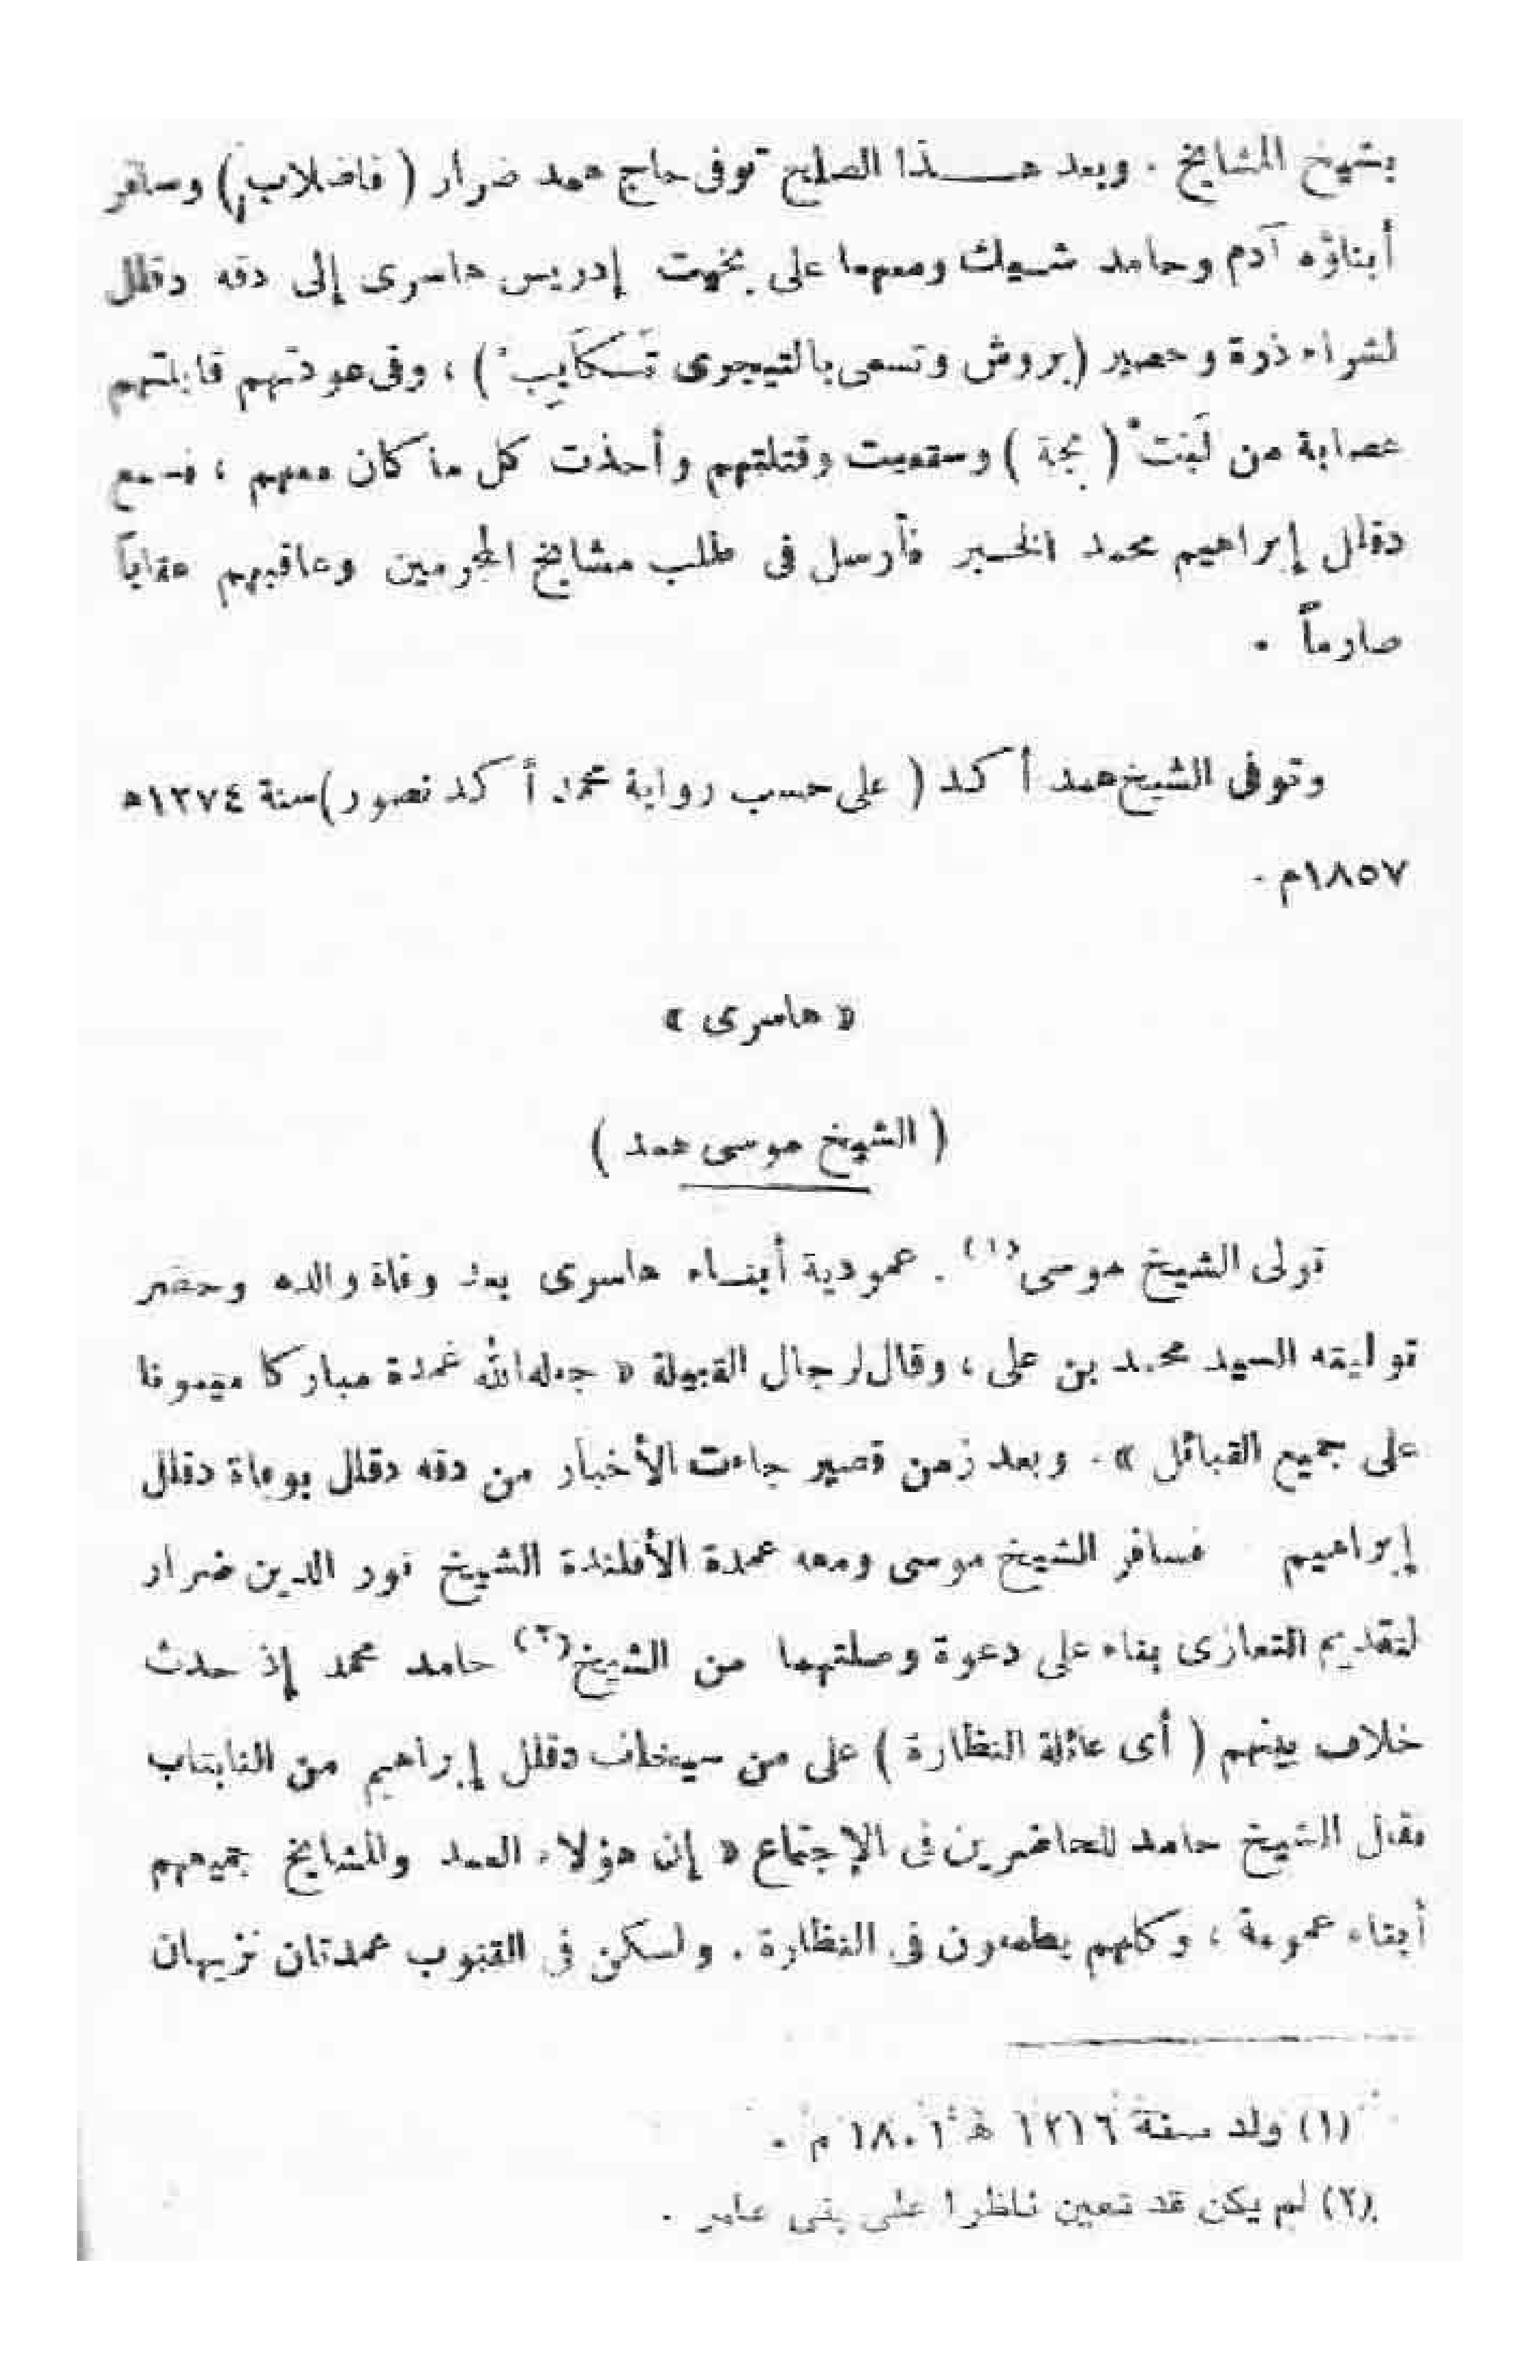 بشيخ المشايخ . وبعد هـــذا الصلح توفى حاج همد ضرار ( فاضلاب ) وسافر
أبناؤه آدم وحامد شيك ومعهما على بخيت إدريس هاسرى إلى دقه دقلل
لشراء ذرة وحصير (بروش وتسمى بالتيجرى تَسكَايِبْ ) ، وفى عودتهم قابلتهم
عصابة من لَبَتْ ( بجة ) وسقميت وقتلتهم وأخذت كل ما كان معهم ، فسمع
دقلل إبراهيم محمد الخبر فأرسل فى طلب مشايخ المجرمين وعاقبهم عقاباً
صارماً .
وتوفى الشيخ همد أكد ( على حسب رواية محمد أكد نصور ) سنة ١٢٧٤هـ
١٨٥٧م .
« هاسرى »
( الشيخ موسى همد )
تولى الشيخ موسى (١) . عمودية أبنـاء هاسرى بعد وفاة والده وحضر
توليته السيد محمد بن على ، وقال لرجال القبيلة « جعله الله عمدة مباركا ميمونا
على جميع القبائل » . وبعد زمن قصير جاءت الأخبار من دقه دقلل بوفاة دقلل
إبراهيم فسافر الشيخ موسى ومعه عمدة الأفلندة الشيخ نور الدين ضرار
لتقديم التعازى بناء على دعوة وصلتهما من الشيخ (٢) حامد محمد إذ حدث
خلاف بينهم ( أى عائلة النظارة ) على من سيخلف دقلل إبراهيم من النابتاب
فقال الشيخ حامد للحاضرين فى الإجتماع « إن هؤلاء العمد والمشايخ جميعهم
أبناء عمومة ، وكلهم يطمعون فى النظارة . ولكن فى القنوب عمدتان نزيهان
(١) ولد سنة ١٢١٦ هـ ١٨٠١ م .
(٢) لم يكن قد تعين ناظرا على بنى عامر .